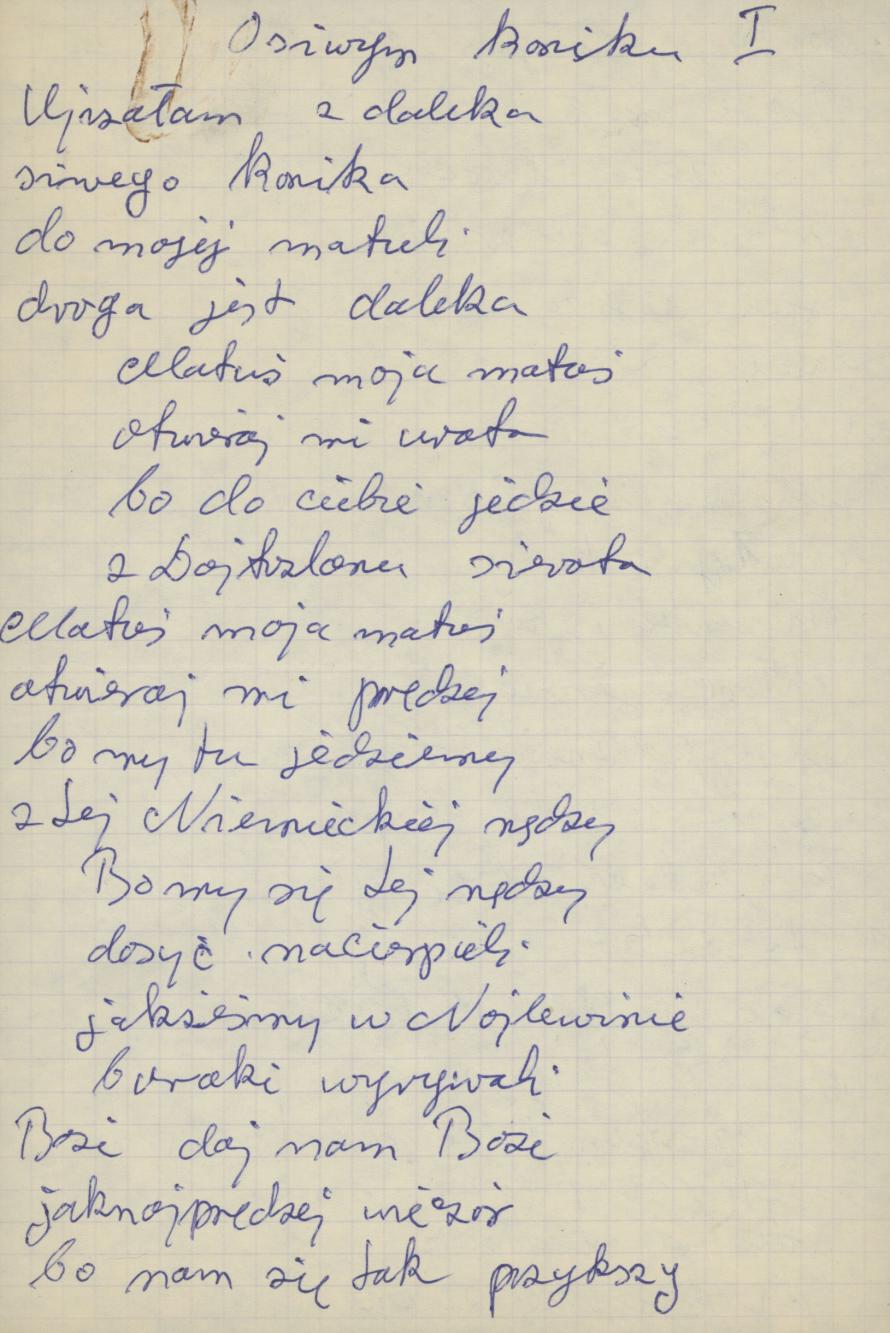 O siwym koniku I
Ujrzałam z daleka
siwego konika
do mojej matuli
droga jest daleka
Matuś moja matuś
otwieraj mi wrota
bo do ciebie jedzie
z Dojtszlanu sierota
Matuś moja matuś
otwieraj mi prędzej
bo my tu jedziemy
z tej Niemieckiej nędzy
Bo my się tej nędzy
dosyć nacierpieli
jakżeśmy w Nojlewinie
buraki wyrywali
Boże daj nam Boże
jaknajprędzej wieczór
bo nam się tak przykszy